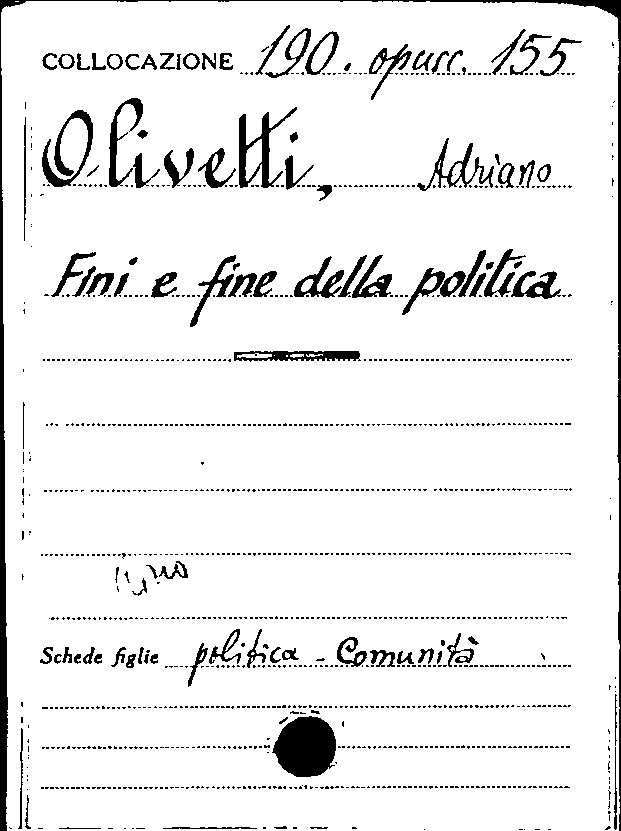 COLLOCAZIONE 190. opusc. 155
Olivetti, Adriano
Fini e fine della politica
Schede figlie politica - Comunità